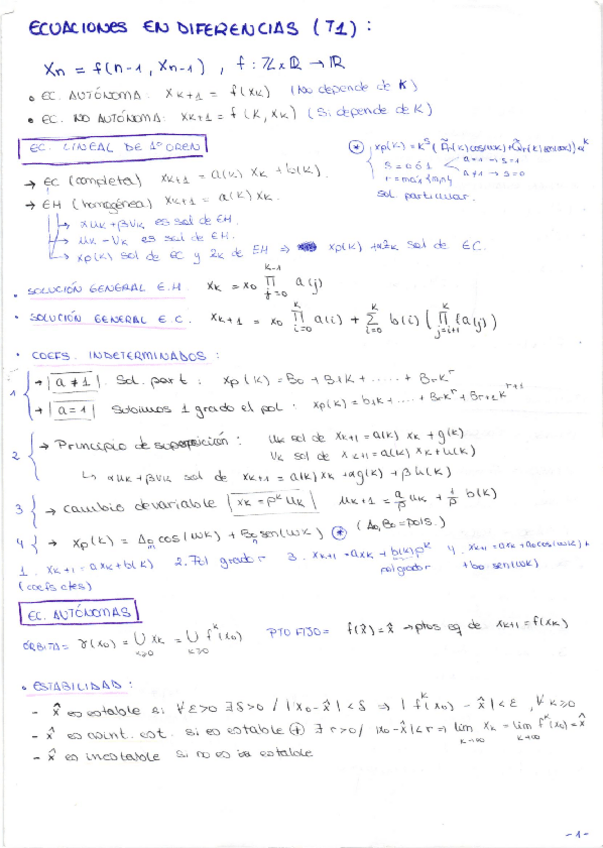 ECUACIONES EN DIFERENCIAS (T1):
Xn = f(n-1, Xn-1) , f: Z x R → R
• EC. AUTÓNOMA: XK+1 = f(XK) (No depende de K)
• EC. NO AUTÓNOMA: XK+1 = f(K, XK) (Si depende de K)
EC. LINEAL DE 1º OREN
→ EC (completa) XK+1 = a(K) XK + b(K).
→ EH (homogénea) XK+1 = a(K) XK.
→ αuK + βVK es sol de EH.
→ uK - VK es sol de EH.
→ xp(K) sol de EC y zK de EH => xp(K) + zK sol de EC.
s = 0 ó 1
sol particular.
• SOLUCIÓN GENERAL E.H. XK = X0 ∏ (j=0, K-1) a(j)
• SOLUCIÓN GENERAL E.C. XK+1 = X0 ∏ (i=0, K) a(i) + ∑ (i=0, K) b(i) ( ∏ (j=i+1, K) (a(j) )
• COEFS. INDETERMINADOS:
1 → a ≠ 1 Sol. part: xp(K) = B0 + B1K + ..... + BrK^r
→ a = 1 Subimos 1 grado el pol: xp(K) = b1K + .... + BrK^r + Br+1K^r+1
2 → Principio de superposición: uK sol de XK+1 = a(K) XK + g(K)
VK sol de XK+1 = a(K) XK + h(K)
↳ αuK + βVK sol de XK+1 = a(K) XK + αg(K) + βh(K)
3 → cambio de variable XK = ρ^K uK uK+1 = a/ρ uK + 1/ρ b(K)
4 → xp(K) = A0 cos(ωK) + B0 sen(ωK) ⊛ (A0, B0 = pols.)
1. XK+1 = aXK + b(K) 2. Pol grado r 3. XK+1 = aXK + b(K)ρ^K 4. XK+1 = aXK + a0cos(ωK) +
(coefs ctes) pol grado r + b0 sen(ωK)
EC. AUTÓNOMAS
ÓRBITA = γ(x0) = ∪ (K≥0) XK = ∪ (K≥0) f^K(x0) PTO FIJO = f(x̂) = x̂ → ptos eq de XK+1 = f(XK)
• ESTABILIDAD:
- x̂ es estable si ∀ε>0 ∃δ>0 / |x0 - x̂| < δ ⇒ |f^K(x0) - x̂| < ε, ∀K≥0
- x̂ es asint. est. si es estable ⊕ ∃ r>0 / |x0 - x̂| < r ⇒ lim (K→∞) XK = lim (K→∞) f^K(x0) = x̂
- x̂ es inestable si no es estable
-1-